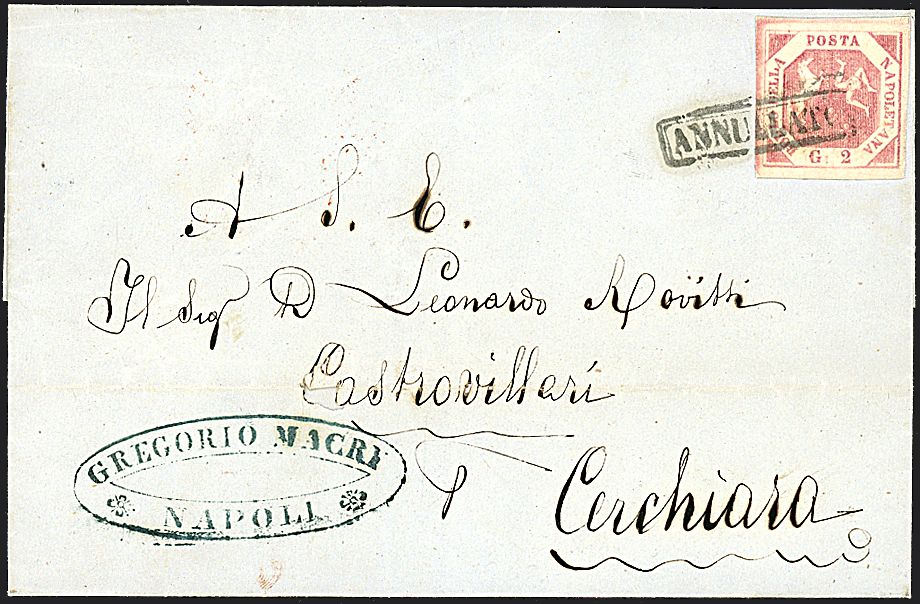 POSTA
NAPOLETANA
G. 2
ANNULLATO
A S. E.
Il Sig D Leonardo Rovitti
Castrovillari
p
Cerchiara
GREGORIO MACRI
NAPOLI